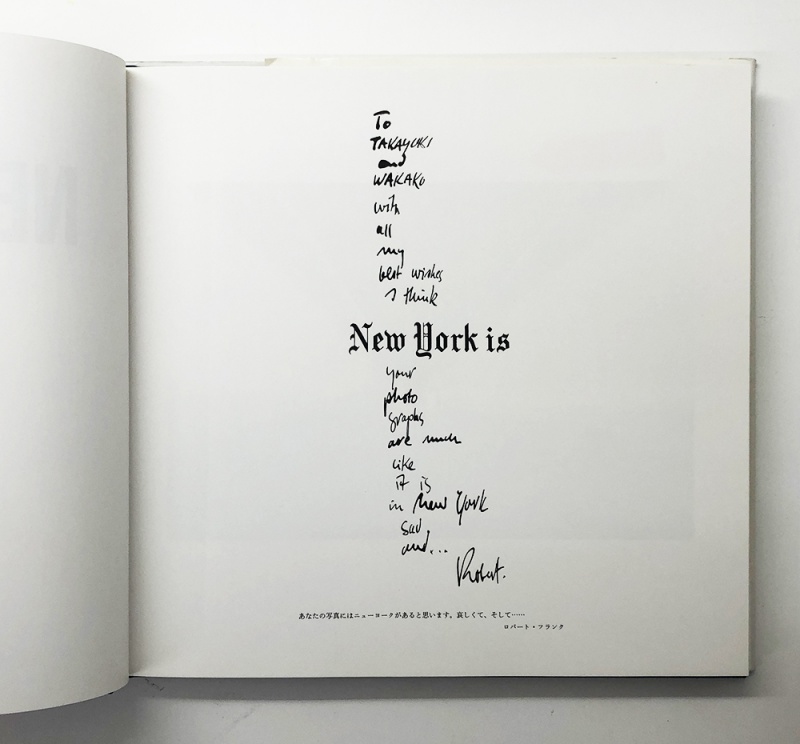 To
TAKAYUKI
and
WAKAKO
with
all
my
best wishes
I think
New York is
your
photo
graphs
are much
like
it is
in New York
sad
and...
Robert.
あなたの写真にはニューヨークがあると思います。哀しくて、そして……
ロバート・フランク